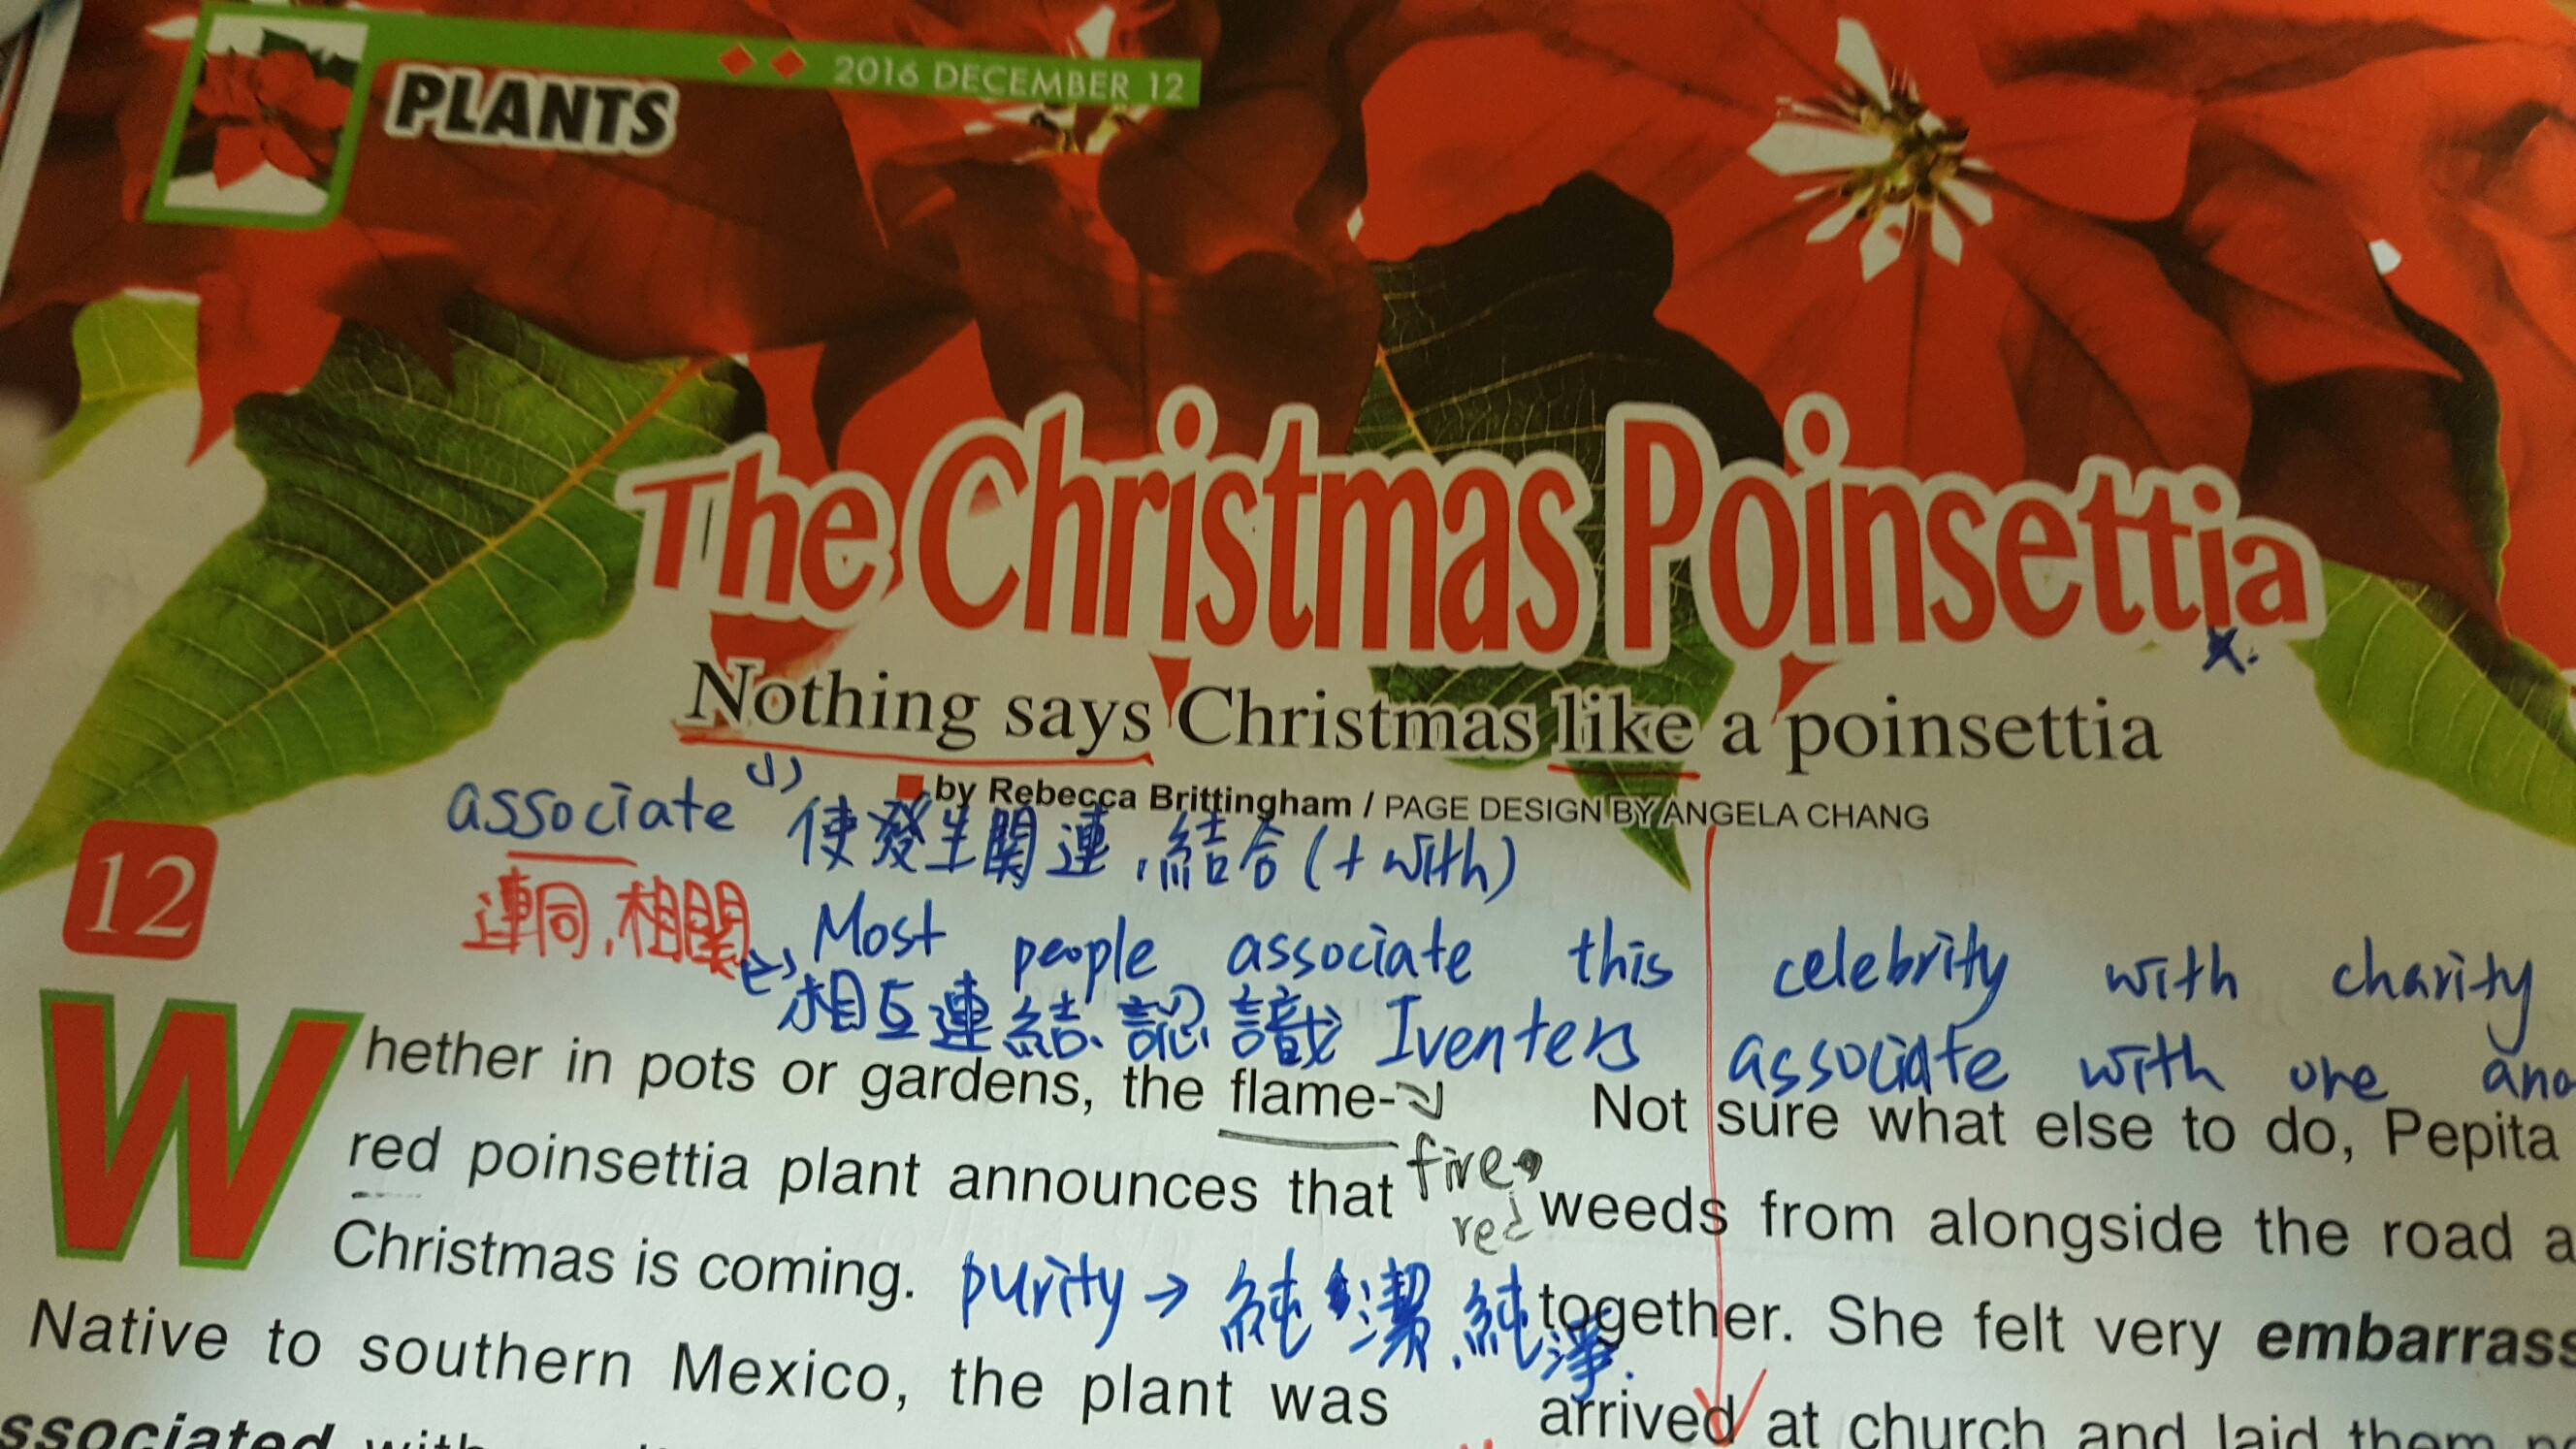 PLANTS
2016 DECEMBER 12
The Christmas Poinsettia
x.
Nothing says Christmas like a poinsettia
by Rebecca Brittingham / PAGE DESIGN BY ANGELA CHANG
associate (1) 使發生関連,結合(+with)
連同,相關
Most people associate this celebrity with charity
(2) 相互連結、認識 Iventers associate with one ano
12
Whether in pots or gardens, the flame-
red poinsettia plant announces that
Christmas is coming.
fire
red
purity → 純潔,純淨.
Native to southern Mexico, the plant was
ssociated with
Not sure what else to do, Pepita
weeds from alongside the road a
together. She felt very embarrass
arrived at church and laid them n